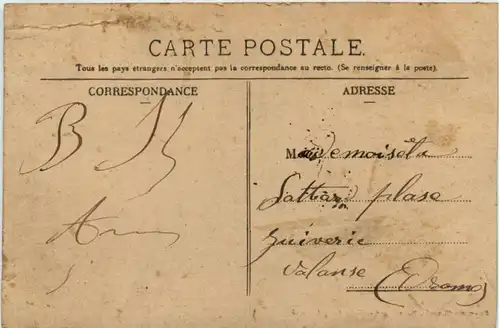 CARTE POSTALE.
Tous les pays étrangers n'acceptent pas la correspondance au recto. (Se renseigner à la poste).
CORRESPONDANCE
ADRESSE
B
Mademoisela
plase
Juiverie
Valanse (Drome)